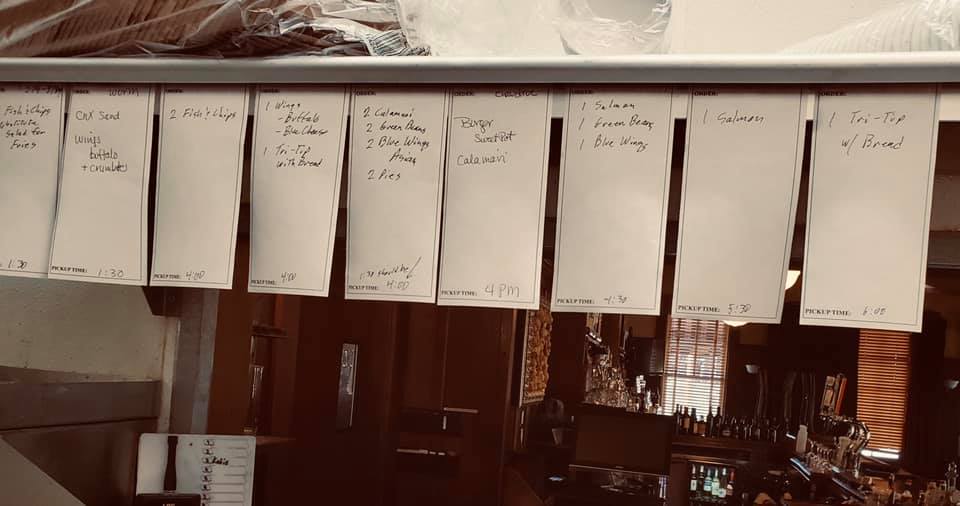 Fish & Chips
Substitute
Salad for
Fries
1:30
ORDER:
CKX Sand
wings
buffalo
+ crumbles
PICKUP TIME: 1:30
ORDER:
2 Fish & Chips
PICKUP TIME: 4:00
ORDER:
1 Wings
- Buffalo
- Blue Cheese
1 Tri-Tip
with Bread
PICKUP TIME: 4:00
ORDER:
2 Calamari
2 Green Beans
2 Blue Wings
Asian
2 Pies
1:30 should be
PICKUP TIME: 4:00
ORDER:
Burger
Sweet Pot
Calamari
PICKUP TIME: 4 PM
ORDER:
1 Salmon
1 Green Beans
1 Blue Wings
PICKUP TIME: 4:30
ORDER:
1 Salmon
PICKUP TIME: 5:30
ORDER:
1 Tri-Tip
w/ Bread
PICKUP TIME: 6:00